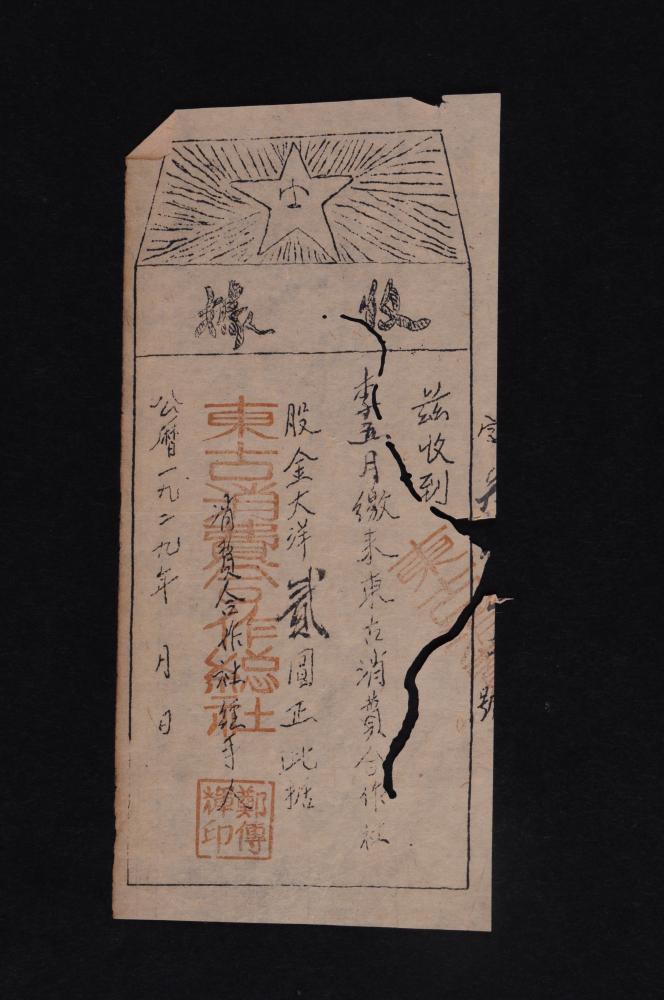 收據
字第
號
茲收到
李五月繳來東古消費合作社
股金大洋貳圓正此據
消費合作社經手人
東古消費合作總社
鄭傳
輝印
公曆一九二九年 月 日